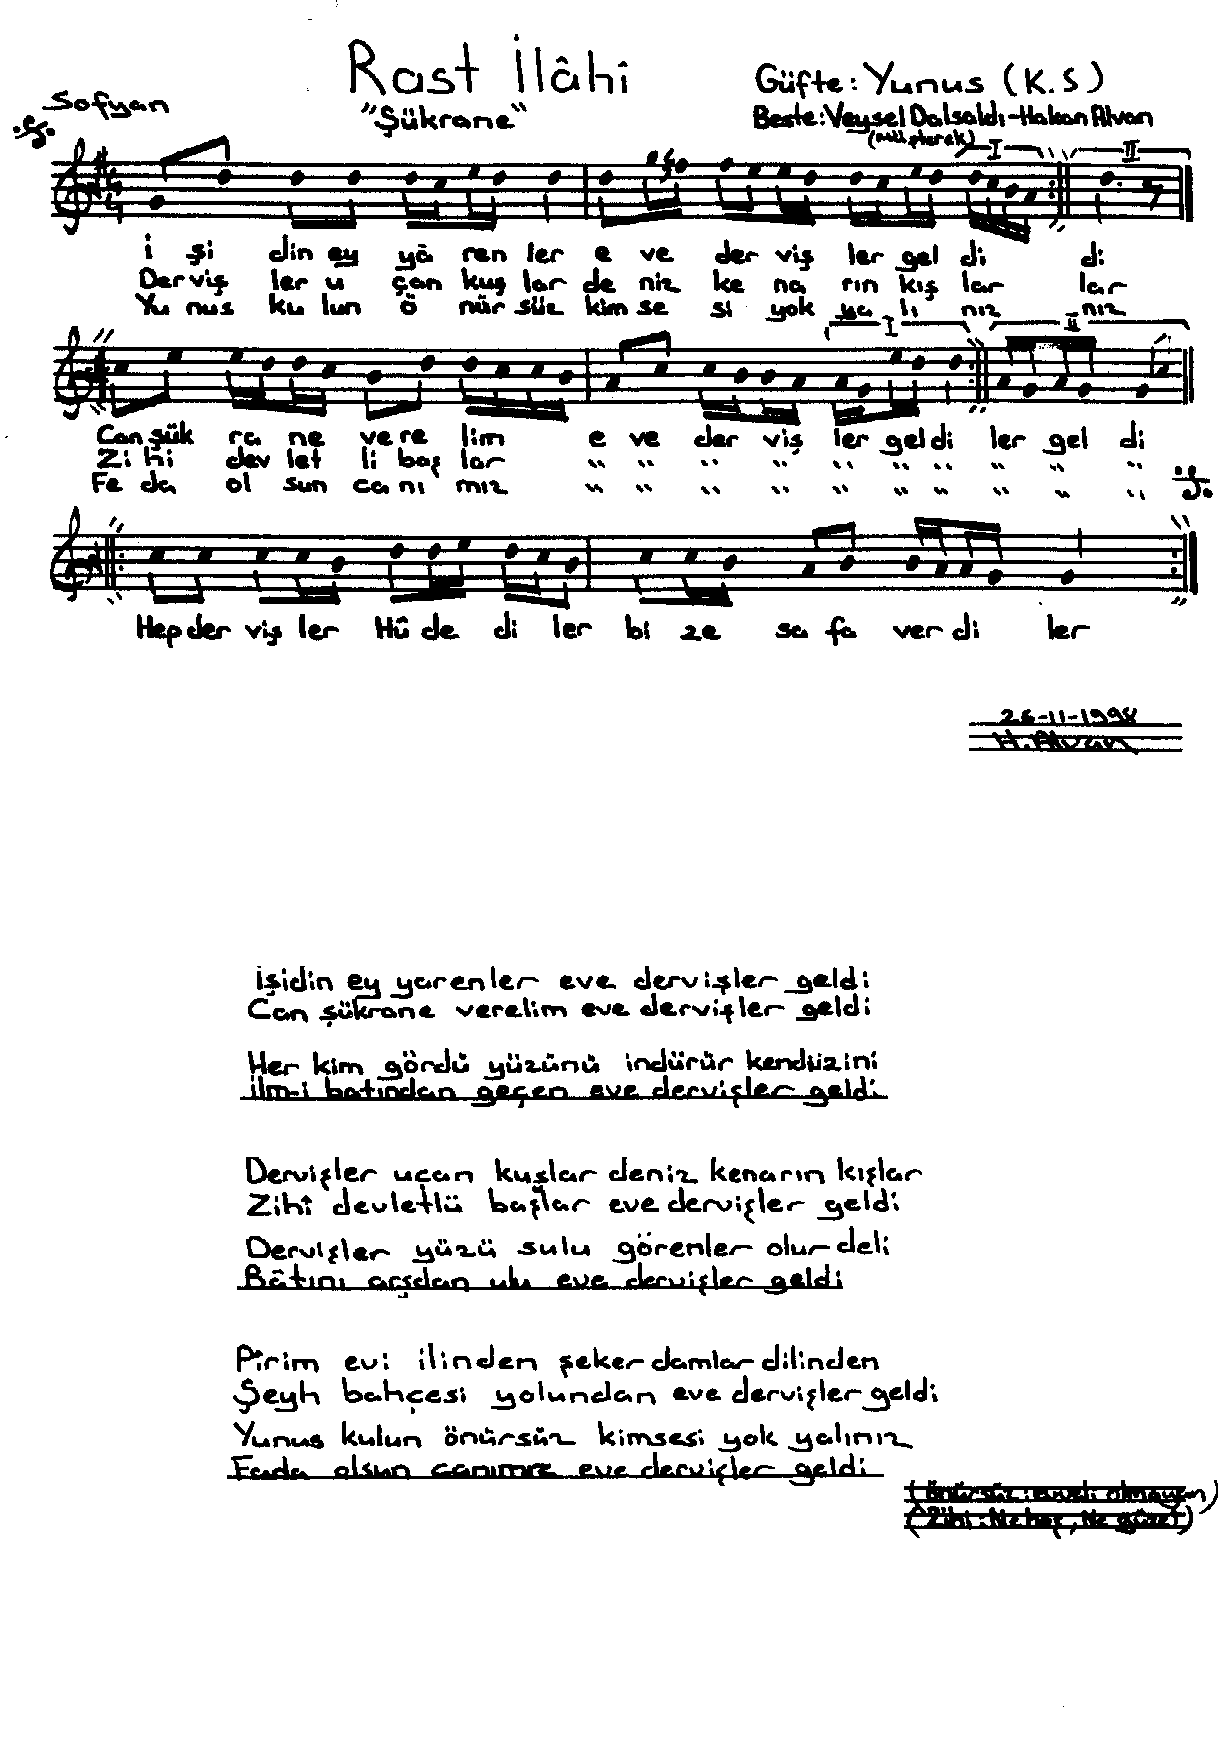 Rast İlâhî
"Şükrane"
Güfte: Yunus (K.S)
Beste: Veysel Dalsaldı-Hakan Alvan
(Müşterek)
Sofyan
I II
i şi din ey yâ ren ler e ve der viş ler gel di di
Der viş ler u çan kuş lar de niz ke na rın kış lar lar
Yu nus ku lun ö nür süz kim se si yok ya lı nız nız
I II
Can şük ra ne ve re lim e ve der viş ler gel di ler gel di
Zi hi dev let li baş lar " " " " " " " " " "
Fe da ol sun canı mız " " " " " " " " " "
Hep der viş ler Hû de di ler bi ze sa fa ver di ler
26-11-1998
H. Alvan
İşidin ey yarenler eve dervişler geldi
Can şükrane verelim eve dervişler geldi
Her kim gördü yüzünü indürür kendüzini
İlm-i batından geçen eve dervişler geldi
Dervişler uçan kuşlar deniz kenarın kışlar
Zihî devletlü başlar eve dervişler geldi
Dervişler yüzü sulu görenler olur deli
Bâtını arşdan ulu eve dervişler geldi
Pîrim evi ilinden şeker damlar dilinden
Şeyh bahçesi yolundan eve dervişler geldi
Yunus kulun önürsüz kimsesi yok yalınız
Fada olsun canımız eve dervişler geldi
(Önürsüz: evveli olmayan)
(Zihi: Ne hoş, Ne güzel)